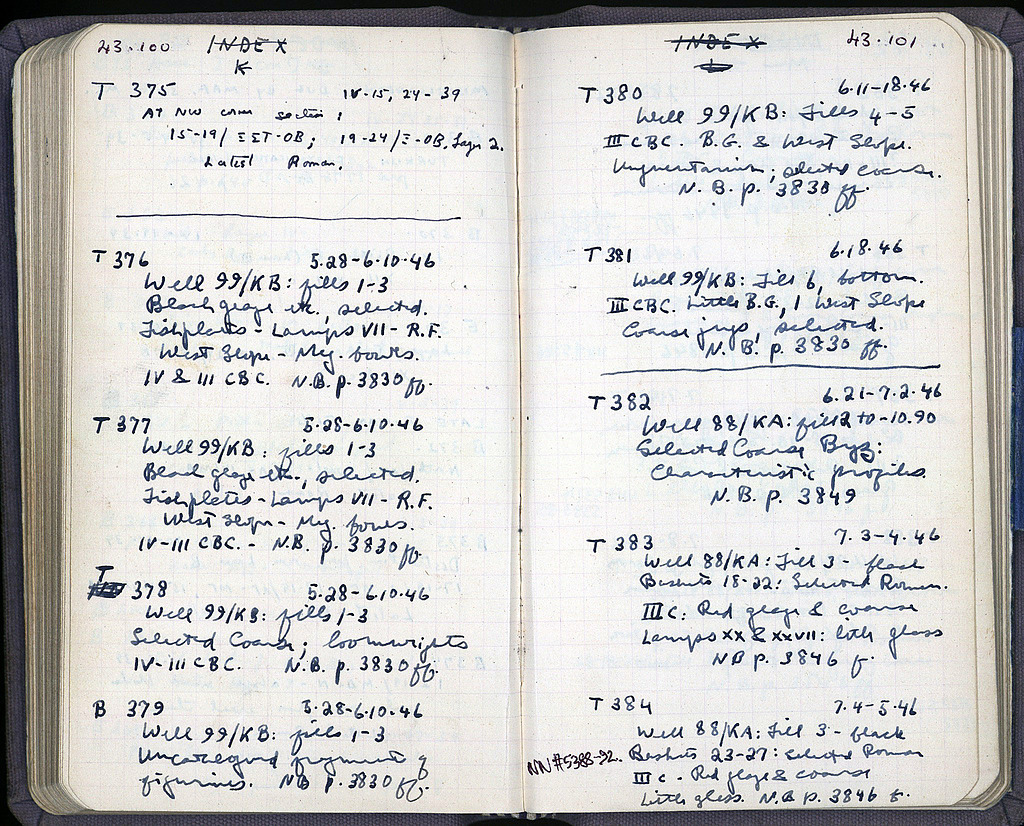 43.100 INDEX
K
T 375 IV-15, 24-39
AT NW corner section:
15-19/ΞΣΤ-ΟΒ; 19-24/Ξ-ΟΒ, Layer 2.
Latest Roman.
T 376 5.28-6.10.46
Well 99/KB: fills 1-3
Black glaze etc., selected.
Fishplates - Lamps VII - R.F.
West Slope - Meg. bowls.
IV & III C BC. N.B. p. 3830 ff.
T 377 5.28-6.10.46
Well 99/KB: fills 1-3
Black glaze etc., selected.
Fishplates - Lamps VII - R.F.
West Slope - Meg. bowls.
IV-III C BC. - N.B. p. 3830 ff.
T
378 5.28-6.10.46
Well 99/KB: fills 1-3
Selected Coarse; loomweights
IV-III C BC. N.B. p. 3830 ff.
B 379 5.28-6.10.46
Well 99/KB: fills 1-3
Uncatalogued fragments of
figurines. NB p. 3830 ff.
INDEX 43.101
T 380 6.11-18.46
Well 99/KB: Fills 4-5
III C BC. B.G. & West Slope.
Unguentarium; selected coarse.
N.B. p. 3830 ff.
T 381 6.18.46
Well 99/KB: Fill 6, bottom.
III C BC. Little B.G., 1 West Slope
Coarse jugs, selected.
N.B. p. 3830 ff.
T 382 6.21-7.2.46
Well 88/KA: fill 2 to -10.90
Selected Coarse Byz:
Characteristic profiles.
N.B. p. 3849
T 383 7.3-4.46
Well 88/KA: Fill 3 - black
Baskets 18-22: Selected Roman.
III C. Red glaze & coarse
Lamps XX & XXVII: little glass
NB p. 3846 f.
T 384 7.4-5.46
Well 88/KA: Fill 3 - black
NN #5388-92. Baskets 23-27: Selected Roman
III C. Red glaze & coarse
Little glass. N.B. p. 3846 f.